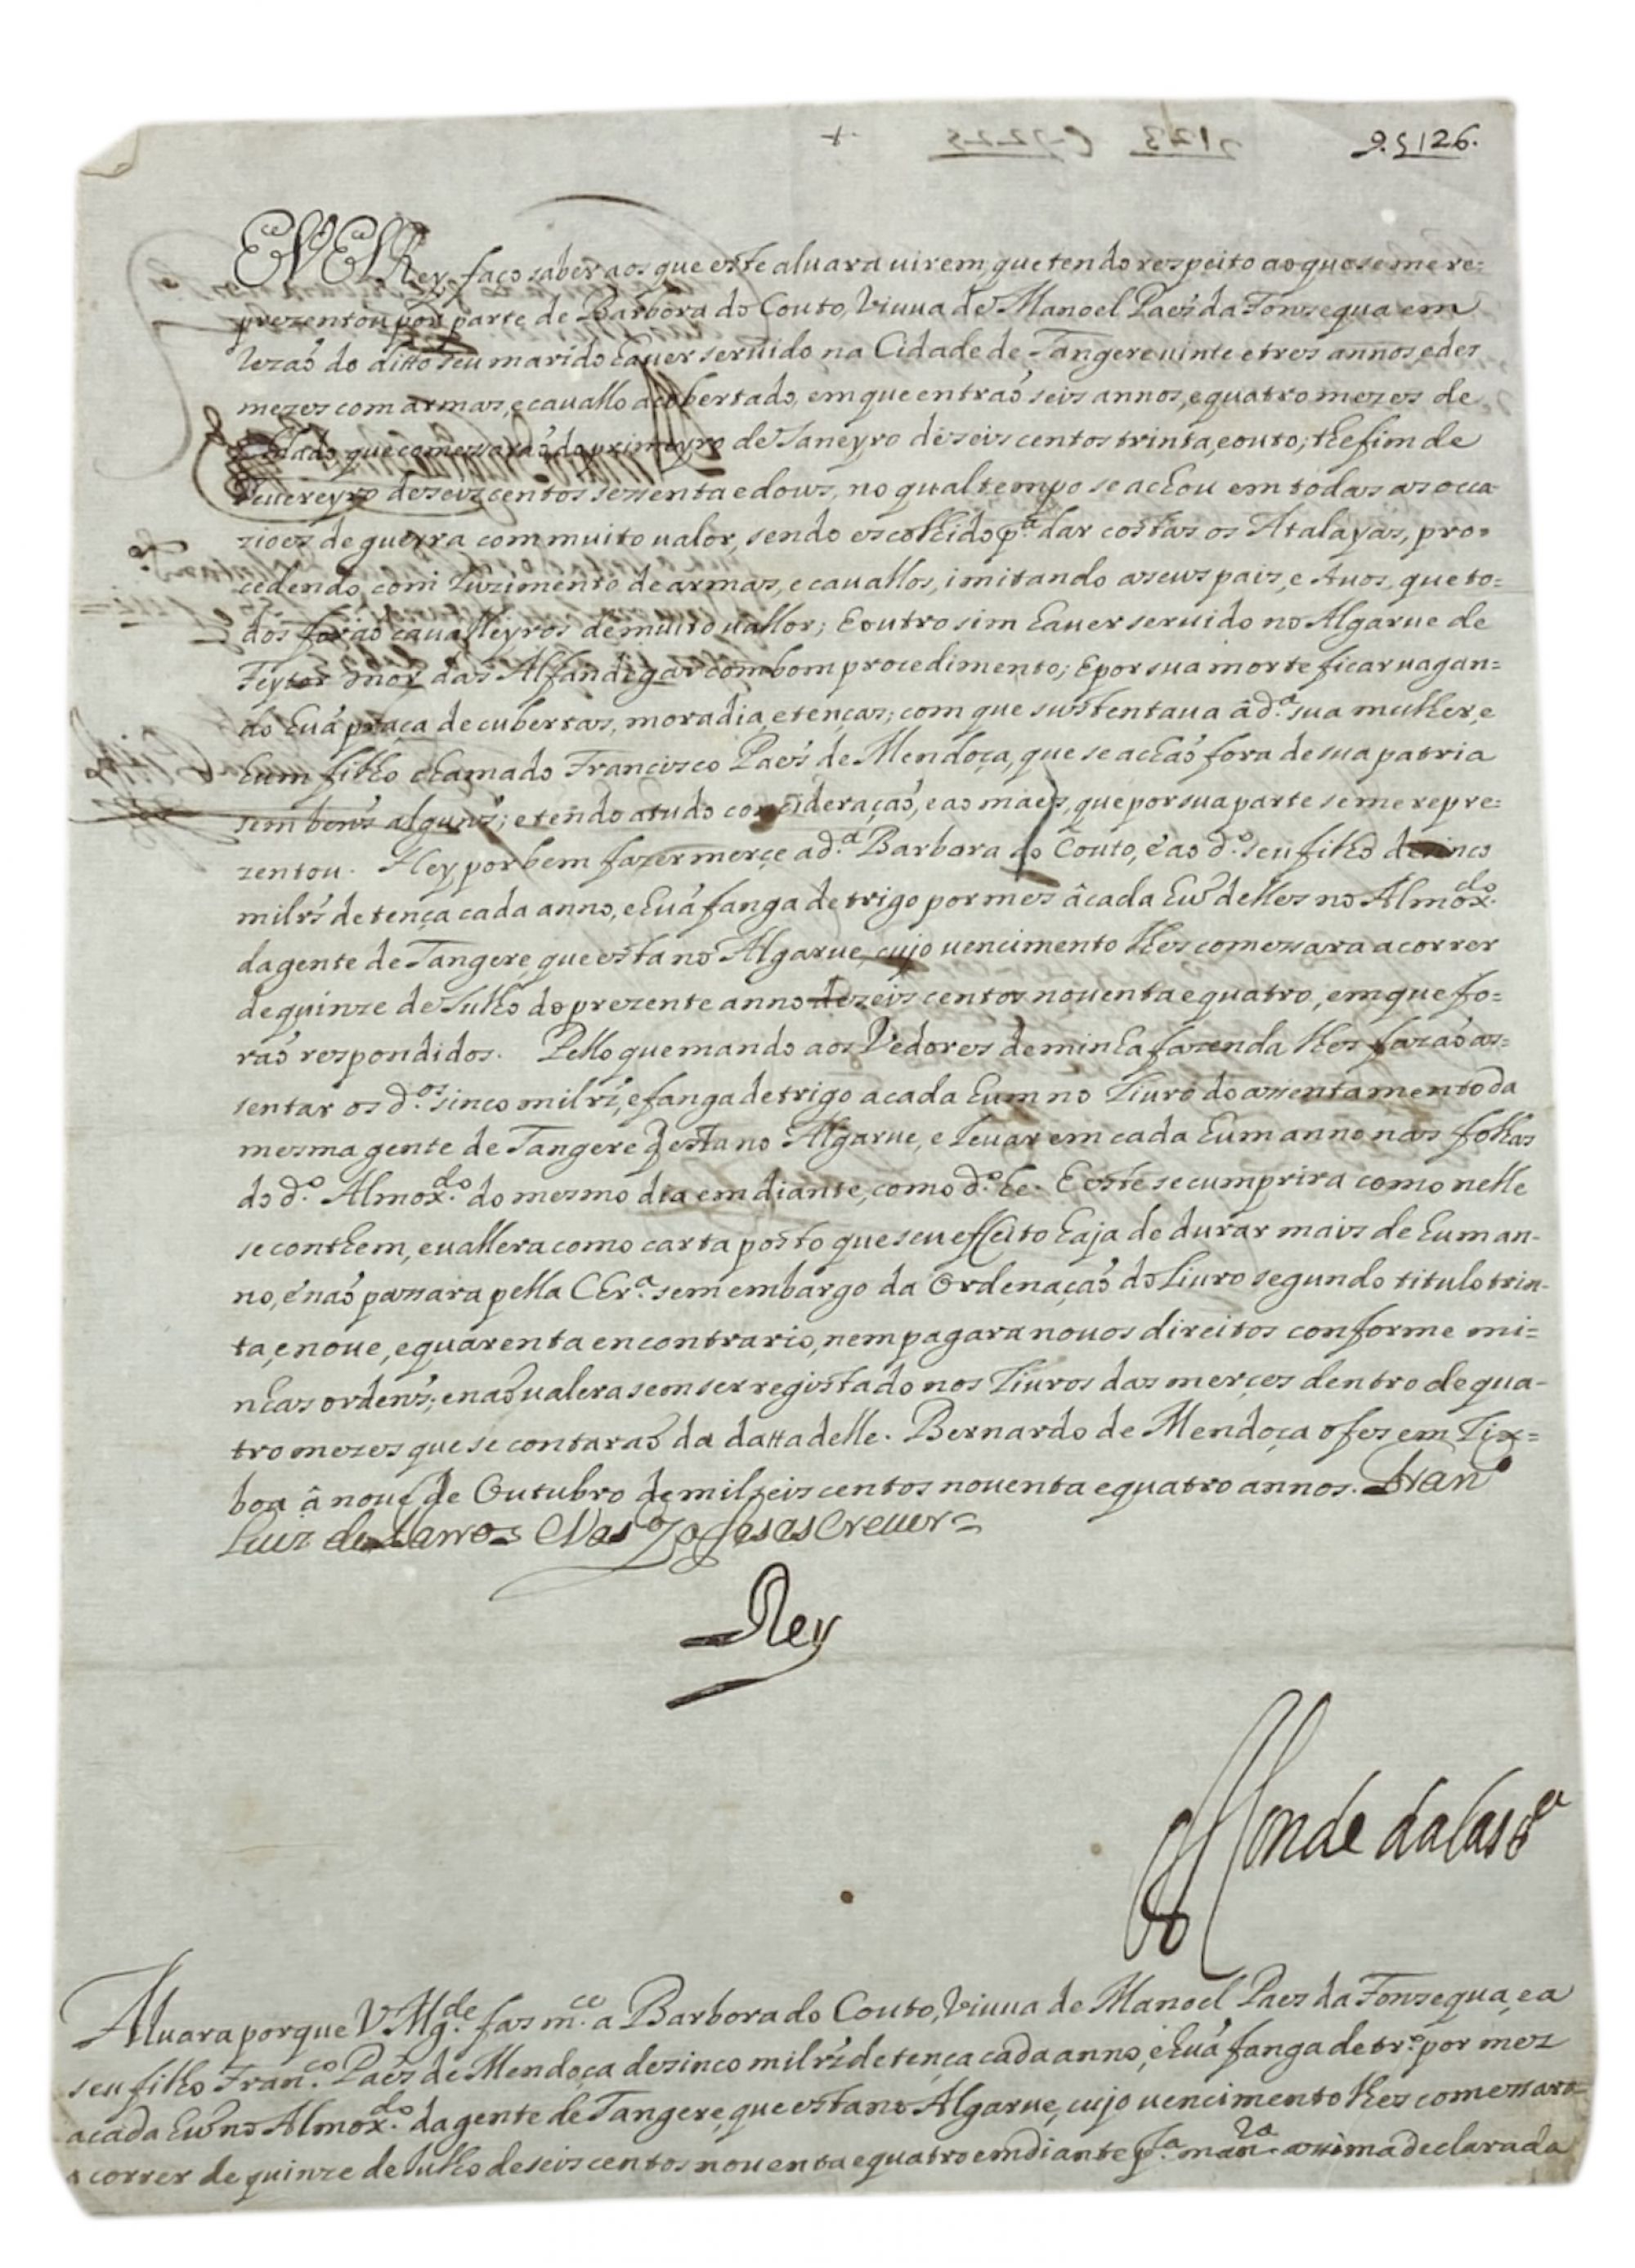 + 9.5126.
EV ElRey faço saber aos que este aluara uirem, que tendo respeito ao que se me re=
prezentou por parte de Barbora do Couto, Viuua de Manoel Paes da Fonsequa em
rezaõ do ditto seu marido hauer seruido na Cidade de Tangere uinte e tres annos, e des
mezes com armas, e cauallo acobertado, em que entraõ seis annos, e quatro mezes de
que comessaraõ do primeyro de Janeyro de seis centos trinta, e outo; the fim de
Feuereyro de seis centos sessenta e dous, no qual tempo se achou em todas as occa
zioes de guerra com muito ualor, sendo escolhido p.ª dar costas os Atalayas, pro=
cedendo com luzimento de armas, e cauallos, imitando a seus pais, e Auos, que to=
dos foraõ caualleyros de muito uallor; E outro sim hauer seruido no Algarue de
Feytor mor das Alfandigas com bom procedimento; E por sua morte ficar uagan=
do huã praça de cubertas, moradia, e tenças; com que sustentaua â d.ª sua mulher, e
hum filho chamado Francisco Paes de Mendoça, que se achaõ fora de sua patria
sem bens alguns; e tendo a tudo consideraçaõ, e ao maes, que por sua parte se me repre=
zentou. Hey por bem fazer merçe a d.ª Barbara do Couto, e ao d.º seu filho de sinco
mil rs̃ de tença cada anno, e huã fanga de trigo por mes â cada hũ delles no Almox.do
da gente de Tangere, que esta no Algarue, cujo uencimento lhes comessara a correr
de quinze de Julho do prezente anno de seis centos nouenta e quatro, em que fo=
raõ respondidos. Pello que mando aos Vedores de minha fazenda lhes fazaõ as=
sentar os d.os sinco mil rs̃, e fanga de trigo a cada hum no Liuro do assentamento da
mesma gente de Tangere q̃ esta no Algarue, e leuar em cada hum anno nas folhas
do d.º Almox.do do mesmo dia em diante, como d.º he. E este se cumprira como nelle
se conthem, e uallera como carta posto que seu effeito haja de durar mais de hum an-
no, e naõ passara pella Chr.ª sem embargo da Ordenaçaõ do Liuro segundo titulo trin-
ta, e noue, e quarenta en contrario, nem pagara nouos direitos conforme mi=
nhas ordens; e naõ ualera sem ser registado nos Liuros das merçes dentro de qua-
tro mezes que se contaraõ da datta delle. Bernardo de Mendoça o fes em Lix=
boa â noue de Outubro de mil seis centos nouenta e quatro annos. Fran.º
Luiz de Barros e Vas.º o fes escreuer=
Rey
Conde da Cast.ª
Aluara porque V. Mg.de fas m.ce a Barbora do Couto, Viuua de Manoel Paes da Fonsequa, e a
seu filho Fran.co Paes de Mendoça de sinco mil rs̃ de tença cada anno, e huã fanga de tr.º por mez
a cada hũ no Almox.do da gente de Tangere, que esta no Algarue, cujo uencimento lhes comessara
a correr de quinze de Julho de seis centos nouenta e quatro em diante p.ª man.ra assima declarada